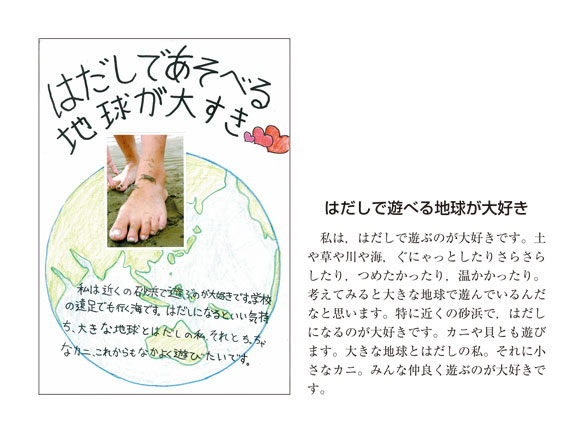 はだしであそべる
地球が大すき
私は近くの砂浜で遊ぶのが大好きです。学校
の遠足でも行く海です。はだしになるといい気持
ち、大きな地球とはだしの私。それとちっちゃ
なカニ、これからもなかよく遊びたいです。
はだしで遊べる地球が大好き
私は，はだしで遊ぶのが大好きです。土
や草や川や海，ぐにゃっとしたりさらさら
したり，つめたかったり，温かかったり。
考えてみると大きな地球で遊んでいるんだ
なと思います。特に近くの砂浜で，はだし
になるのが大好きです。カニや貝とも遊び
ます。大きな地球とはだしの私。それに小
さなカニ。みんな仲良く遊ぶのが大好きで
す。